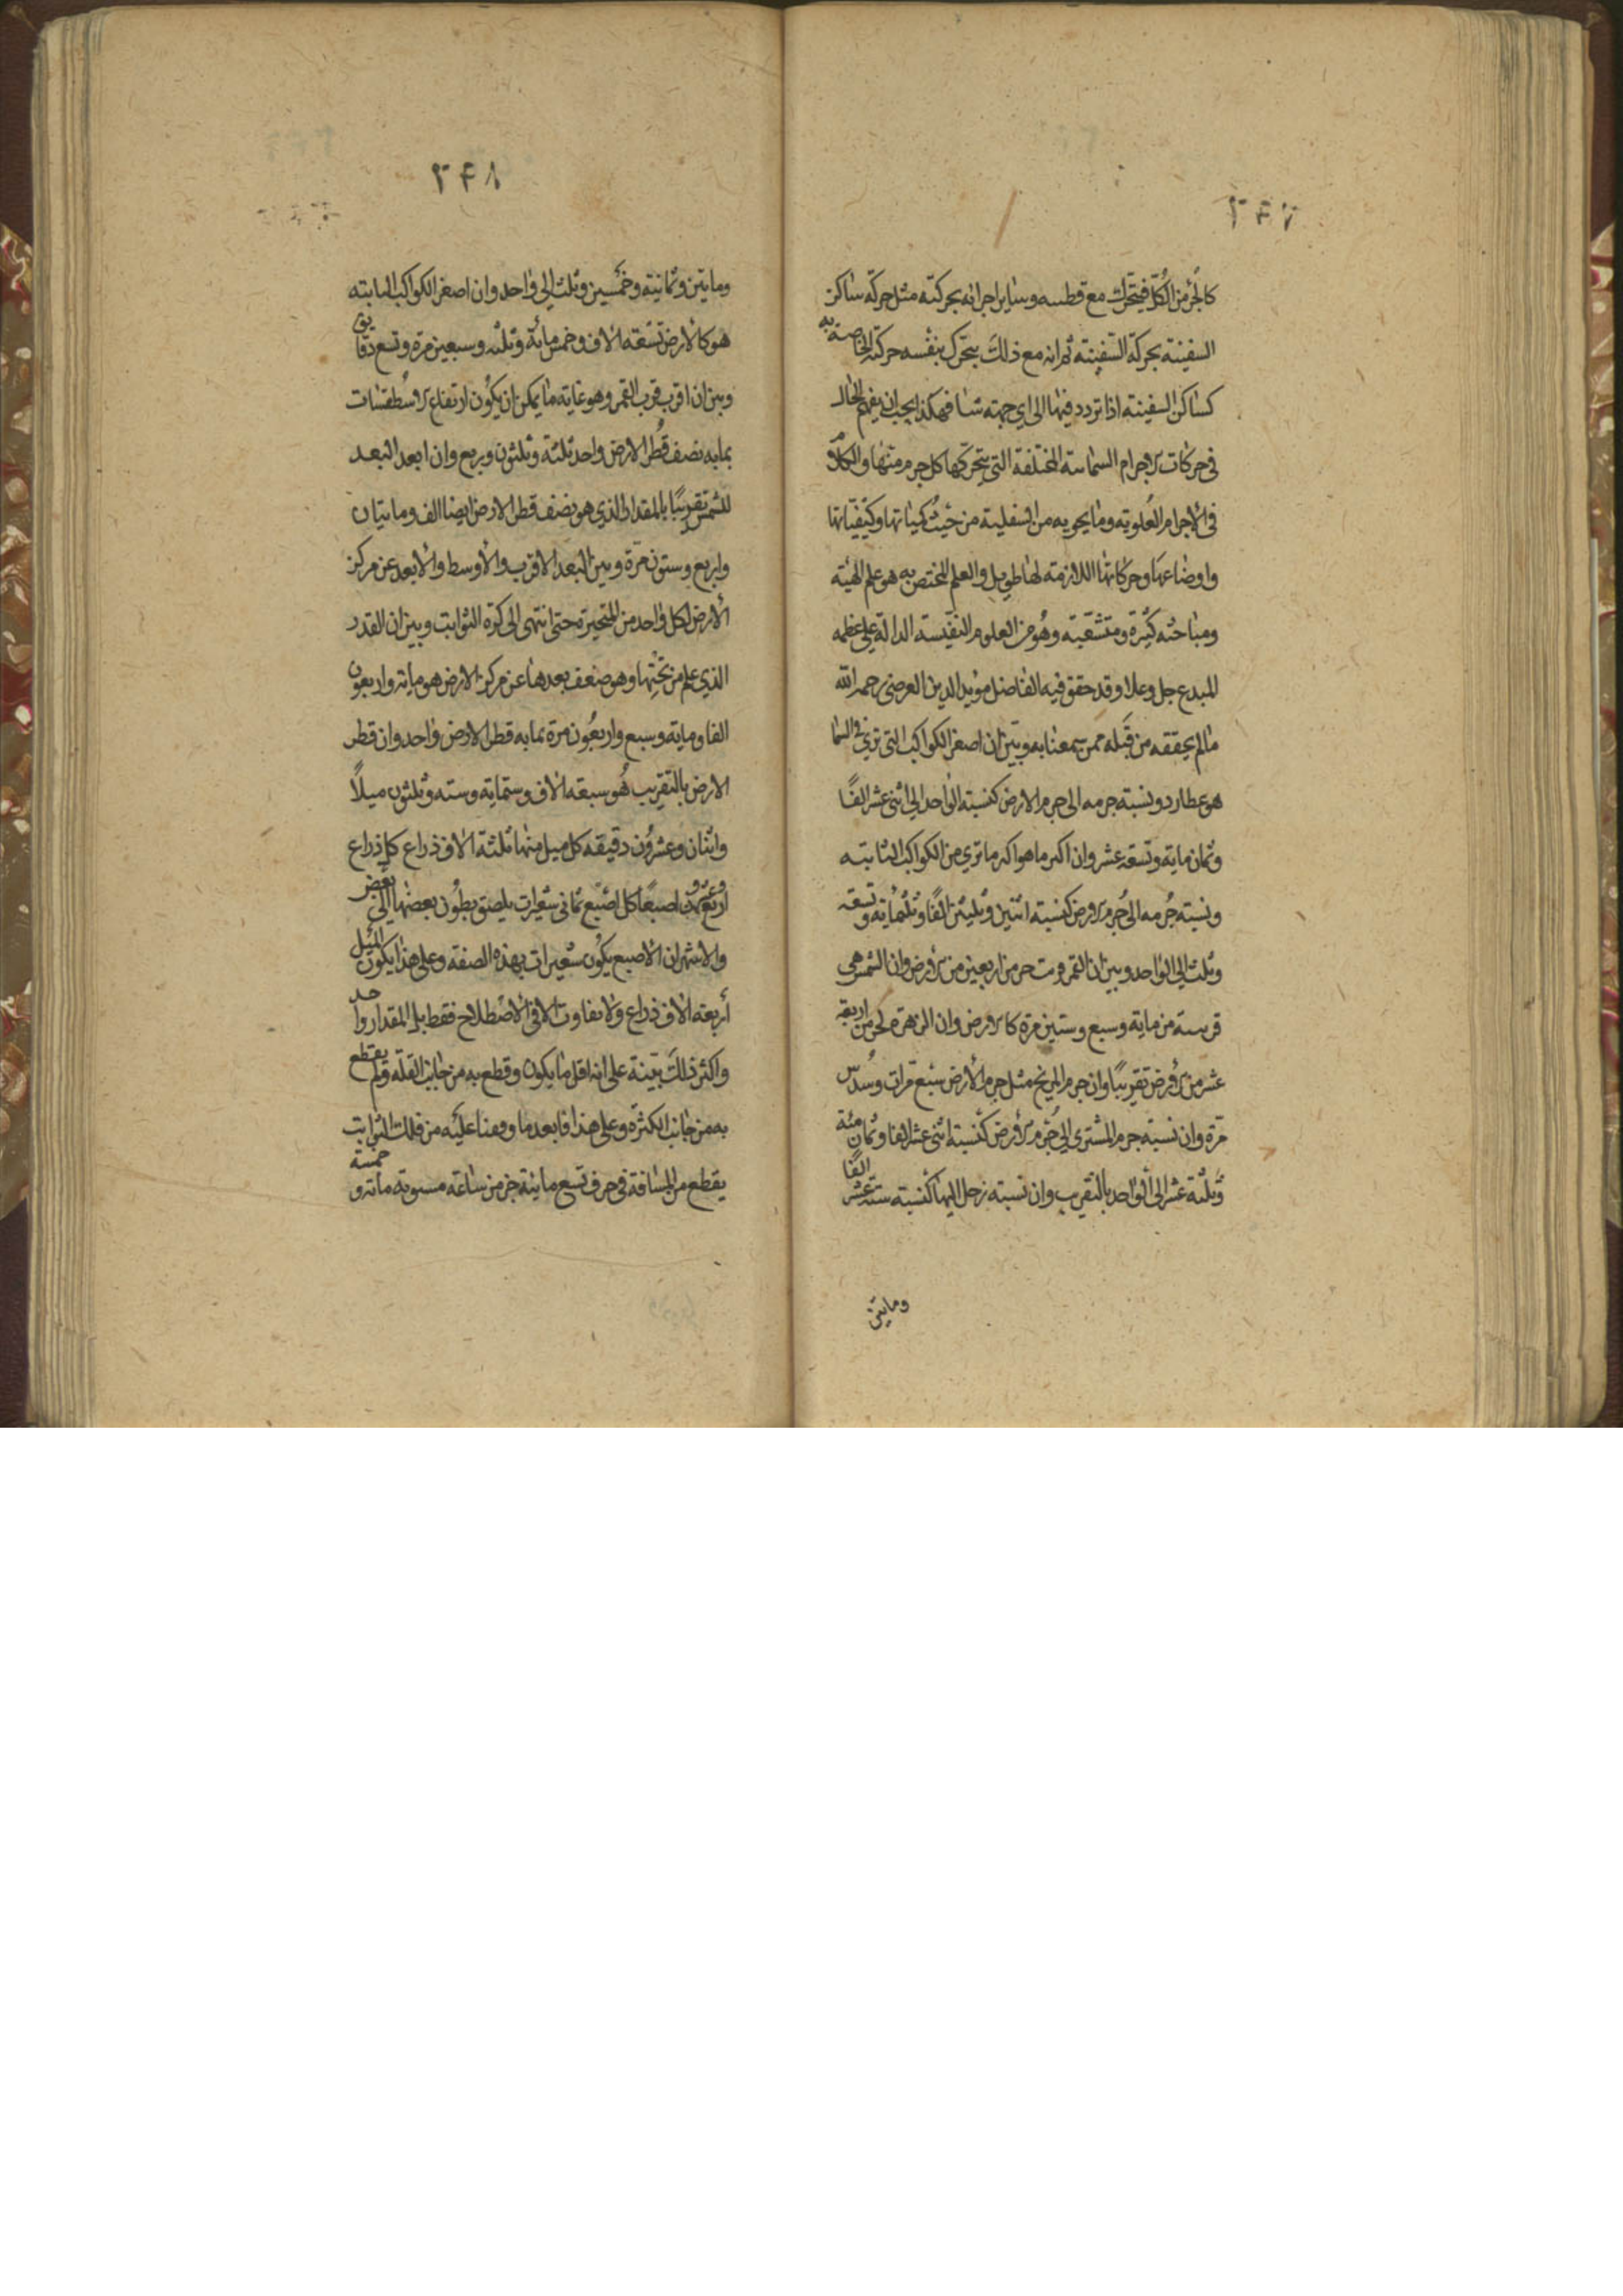 ٢٤٧
كالجزء من الكل فيتحرك مع قطبيه وسائر اجزائه بحركته مثل حركة ساكن
السفينة بحركة السفينة ثم انه مع ذلك يتحرك بنفسه حركته الخاصة به
كساكن السفينة اذا تردد فيها الى اي جهة شا فهكذا يجب ان يفهم الحال
في حركات الاجرام السماية المختلفة التي يتحركها كل جرم منها والكلام
في الاجرام العلوية وما يحويه من السفلية من حيث كمياتها وكيفياتها
واوضاعها وحركاتها اللازمة لها طويل والعلم المختص به هو علم الهيئة
ومباحثه كثيرة ومتشعبة وهو من العلوم النفيسة الدالة على عظمة
المبدع جل وعلا وقد حقق فيه الفاضل مؤيد الدين العرضي رحمه الله
ما لم يحققه من قبله ممن سمعنا به وبين ان اصغر الكواكب التي ترى في السما
هو عطارد ونسبة جرمه الى جرم الارض كنسبة الواحد الى اثنى عشر الفًا
وثمان ماية وتسعة عشر وان اكبر ما هو اكبر ما ترى من الكواكب الثابتة
ونسبة جرمه الى جرم الارض كنسبة اثنين وثلثين الفًا وثلثماية وتسعة
وثلث الى الواحد وبين ان القمر قريب من جزء من اربعين من الارض وان الشمس هي
قريبة من ماية وسبع وستين مرة كالارض وان الزهرة جزء من اربعة
عشر من الارض تقريبًا وان جرم المريخ مثل جرم الارض سبع مرات وسدس
مرة وان نسبة جرم المشترى الى جرم الارض كنسبة اثنى عشر الفا وثمان مئة
وثلثة عشر الى الواحد بالتقريب وان نسبة زحل اليها كنسبة ستة عشر الفًا
وماتين
٢٤٨
وماتين وثمانية وخمسين وثلث الى واحد وان اصغر الكواكب الثابتة
هو كالارض تسعة الاف وخمس مائة وثلثه وسبعين مرة وتسع دقايق
وبين ان اقرب قرب القمر وهو غاية ما يمكن ان يكون ارتفاع الاسطقسات
بما به نصف قطر الارض واحد ثلثة وثلثون وربع وان ابعد البعد
للشمس تقريبًا بالمقدار الذي هو نصف قطر الارض ايضا الف وماتيان
واربع وستون مرة وبين البعد الاقرب والاوسط والابعد عن مركز
الارض لكل واحد من المتحيرة حتى انتهى الى كرة الثوابت وبين ان القدر
الذي علم من تختها وهو ضعف بعدها عن مركز الارض هو ماية واربعون
الفا وماية وسبع واربعون مرة بما به قطر الارض واحد وان قطر
الارض بالتقريب هو سبعة الاف وستماية وستة وثلثون ميلاً
واثنان وعشرون دقيقة كل ميل منها ثلثة الاف ذراع كل ذراع
اربع وعشرون اصبعًا كل اصبع ثماني شعيرات يلصق بطون بعضها الى بعض
والاشهر ان الاصبع يكون ست شعيرات بهذه الصفة وعلى هذا يكون الميل
اربعة الاف ذراع ولا تفاوت الا في الاصطلاح فقط بل المقدار واحد
واكثر ذلك بينة على انه اقل ما يكون وقطع به من جانب القلة ولم يقطع
به من جانب الكثرة وعلى هذا فابعد ما وقفنا عليه من فلك الثوابت
يقطع من المسافة في جزء من تسع ماية جزء من ساعة مستوية ماية وخمسة